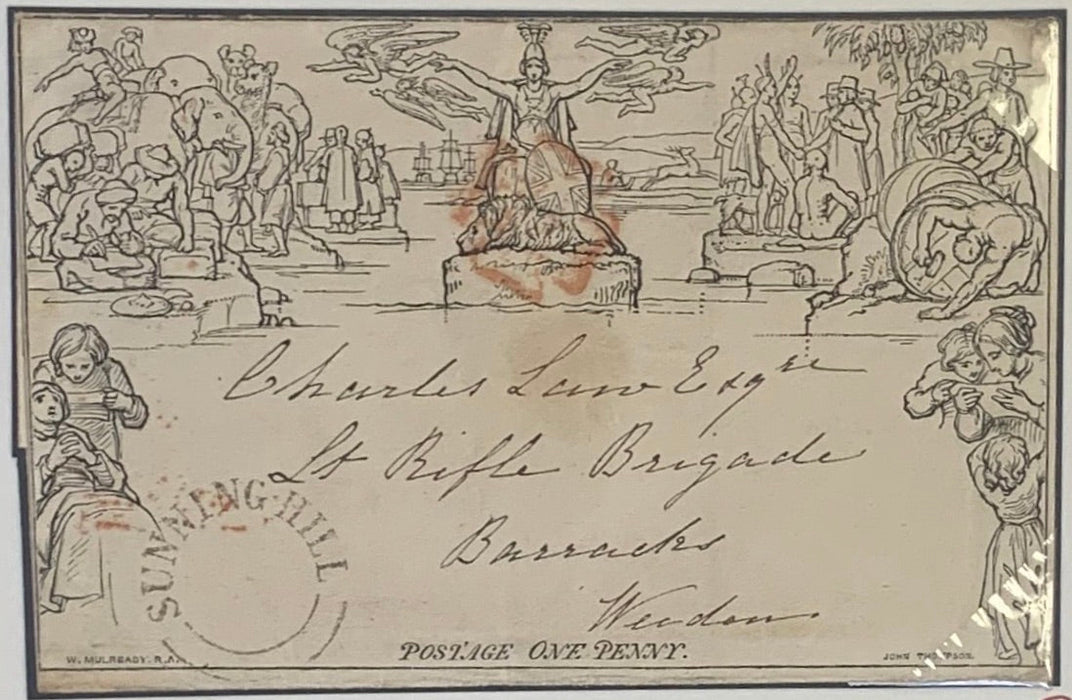 Charles Law Esqre
Lt Rifle Brigade
Barracks
Weedon
SUNNING-HILL
POSTAGE ONE PENNY.
W. MULREADY. R.A.
JOHN THOMPSON.